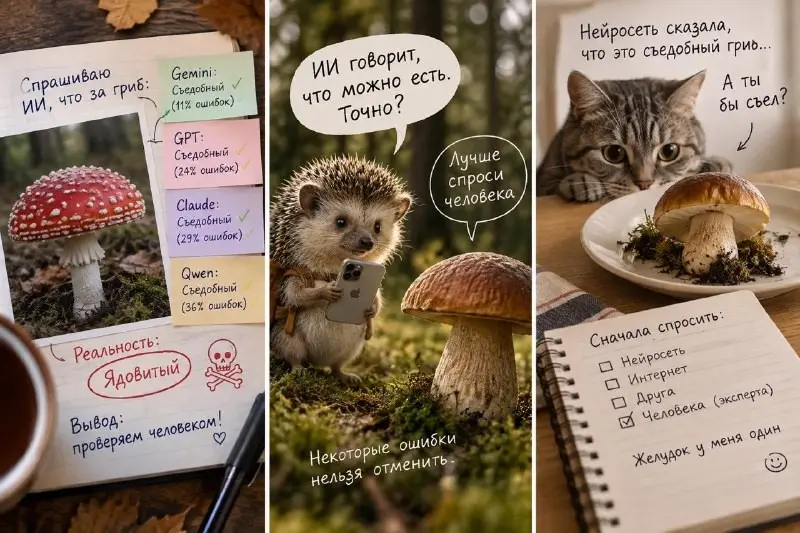 Спрашиваю
ИИ, что за гриб:
Gemini:
Съедобный ✓
(11% ошибок)
GPT:
Съедобный ✓
(24% ошибок)
Claude:
Съедобный ✓
(29% ошибок)
Qwen:
Съедобный
(36% ошибок)
Реальность:
Ядовитый
Вывод:
проверяем человеком!
ИИ говорит,
что можно есть.
Точно?
Лучше
спроси
человека
Некоторые ошибки
нельзя отменить.
Нейросеть сказала,
что это съедобный гриб...
А ты
бы съел?
Сначала спросить:
Нейросеть
Интернет
Друга
Человека (эксперта)
Желудок у меня один